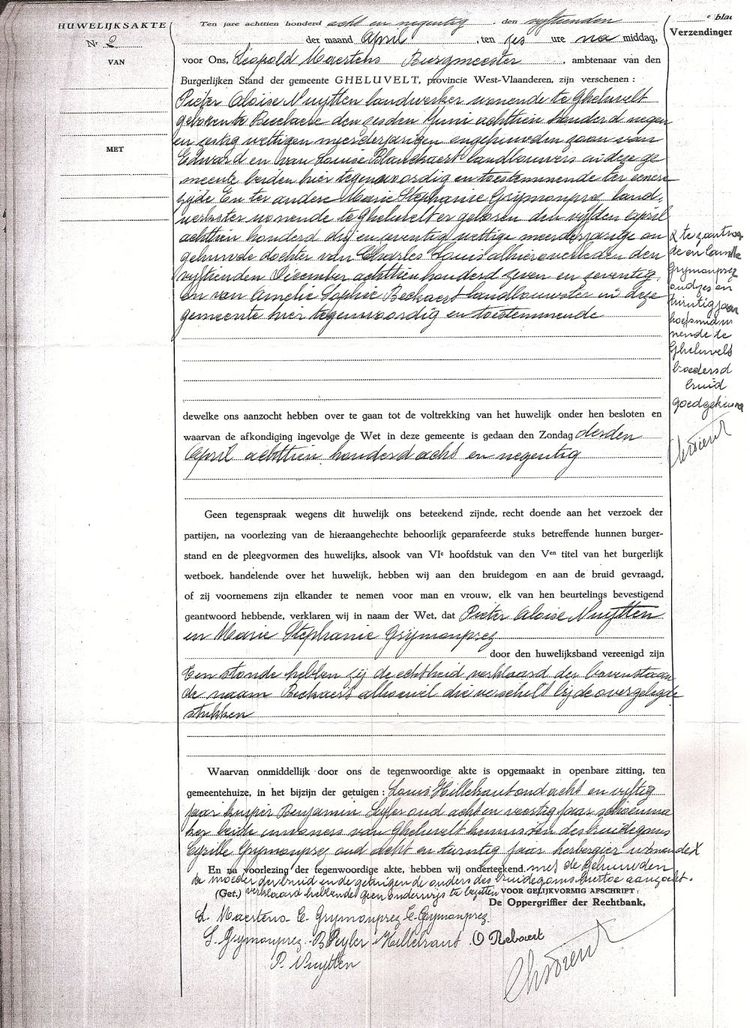 HUWELIJKSAKTE
Nr 2
VAN
MET
Verzendingen
Ten jare achttien honderd acht en negentig, den vijftienden
der maand April, ten zes ure na middag,
voor Ons, Leopold Maertens Burgmeester, ambtenaar van den
Burgerlijken Stand der gemeente GHELUVELT, provincie West-Vlaanderen, zijn verschenen :
Pieter Aloise Nuytten landwerker wonende te Gheluvelt
geboren te Becelaere den zesden Juni achttien honderd negen
en zestig wettigen meerderjarigen ongehuwden zoon van
Edward en van Louise Blanckaert landbouwers in deze ge
meente beiden hier tegenwoordig en toestemmende ter eenre
zijde En ter andere Marie Stephanie Grymonprez, land-
werkster wonende te Gheluvelt er geboren den vijfden April
achttien honderd drij en zeventig wettige meerderjarige on
gehuwde dochter van Charles Louis alhier overleden den
vijftienden December achttien honderd zeven en zeventig
en van Amelie Sophie Beckaert landbouwster in deze
gemeente hier tegenwoordig en toestemmende
dewelke ons aanzocht hebben over te gaan tot de voltrekking van het huwelijk onder hen besloten en
waarvan de afkondiging ingevolge de Wet in deze gemeente is gedaan den Zondag derden
April achttien honderd acht en negentig
Geen tegenspraak wegens dit huwelijk ons beteekend zijnde, recht doende aan het verzoek der
partijen, na voorlezing van de hieraangehechte behoorlijk geparafeerde stuks betreffende hunnen burger-
stand en de pleegvormen des huwelijks, alsook van VIe hoofdstuk van den Ven titel van het burgerlijk
wetboek, handelende over het huwelijk, hebben wij aan den bruidegom en aan de bruid gevraagd,
of zij voornemens zijn elkander te nemen voor man en vrouw, elk van hen beurtelings bevestigend
geantwoord hebbende, verklaren wij in naam der Wet, dat Pieter Aloise Nuytten
en Marie Stephanie Grymonprez
door den huwelijksband vereenigd zijn
Een stonde hebben zij de echtheid verklaard der bovenstaan
de naam Beckaert alhoewel die verschilt bij de overgelegde
stukken
Waarvan onmiddellijk door ons de tegenwoordige akte is opgemaakt in openbare zitting, ten
gemeentehuize, in het bijzijn der getuigen : Louis Hillebrant oud acht en vijftig
jaar kuiper Benjamin Seyler oud acht en veertig jaar schoenma
ker beide inwoners van Gheluvelt kennissen des bruidegoms
Cyrille Grymonprez oud acht en twintig jaar herbergier wonende X
En na voorlezing der tegenwoordige akte, hebben wij onderteekend met de gehuwden
de moeder der bruid en de getuigen de ouders des bruidegoms hiertoe aanzocht.
(Get.) verklaard hebbende geen onderwijs te bezitten VOOR GELIJKVORMIG AFSCHRIFT :
De Oppergriffier der Rechtbank,
L. Maertens C. Grymonprez C. Grymonprez
S. Grymonprez B Seyler Hillebrant
P. Nuytten
en Camille
Grymonprez
oud zes en
twintig jaar
nende te
Gheluvelt
broeders d
bruid
goedgekeurd